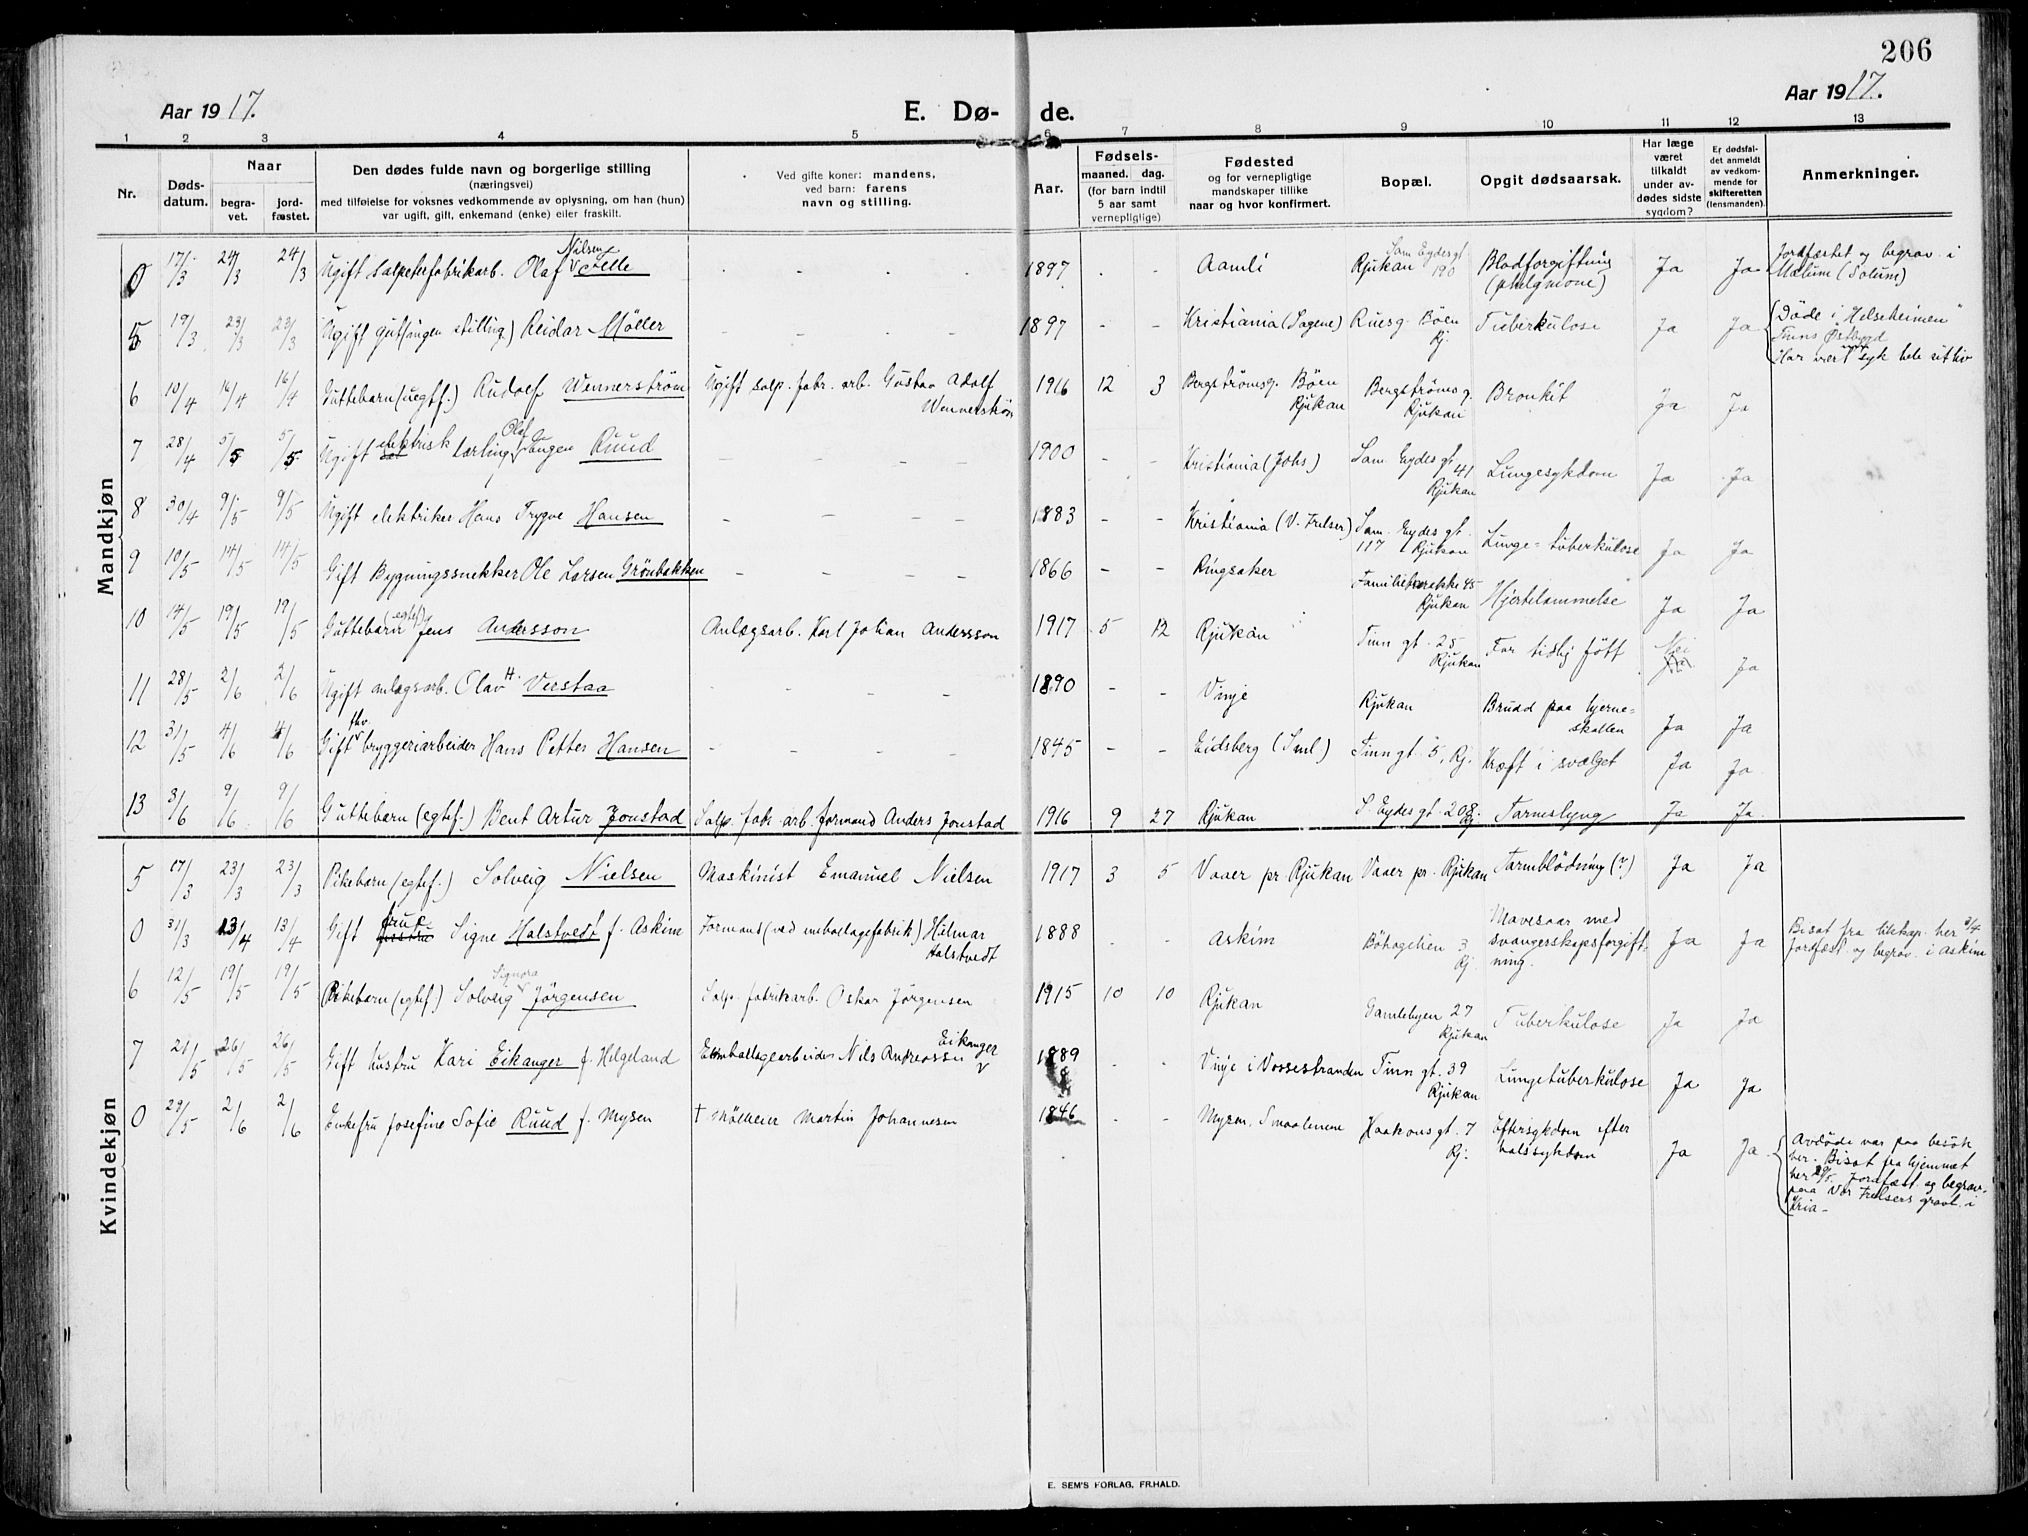 206
Aar 1917.
E. Dø- de.
Aar 1917.
1 2 3 4 5 6 7 8 9 10 11 12 13
Nr.
Døds-
datum.
Naar
begra-
vet.
jord-
fæstet.
Den dødes fulde navn og borgerlige stilling
(næringsvei)
med tilføielse for voksnes vedkommende av oplysning, om han (hun)
var ugift, gift, enkemand (enke) eller fraskilt.
Ved gifte koner: mandens,
ved barn: farens
navn og stilling.
Aar.
Fødsels-
maaned. dag.
(for barn indtil
5 aar samt
vernepligtige)
Fødested
og for vernepligtige
mandskaper tillike
naar og hvor konfirmert.
Bopæl.
Opgit dødsaarsak.
Har læge
været
tilkaldt
under av-
dødes sidste
sygdom?
Er dødsfal-
det anmeldt
av vedkom-
mende for
skifteretten
(lensmanden).
Anmerkninger.
Mandkjøn
0 17/3 24/3 24/3 Ugift salpeterfabrikarb. Olaf Nilsen Felle - - - - 1897 - - Aamli Rjukan Sam Eydes gt 190 Blodforgiftning (phlegmone) Ja Ja Jordfæstet og begrav. i Mælum (Solum)
5 19/3 23/3 23/3 Ugift gut (ingen stilling) Reidar Møller - - - - 1897 - - Kristiania (Sagene) Ruesg. Böen Rj. Tuberkulose Ja Ja Døde i "Helseheimen" Tinns Østbygd Har vært syk hele sit liv
6 10/4 16/4 16/4 Guttebarn (uegtf.) Rudolf Wennerström Ugift salp. fabr. arb. Gustav Adolf Wennerström 1916 12 3 Bergströmsg. Böen Rjukan Bergströmsg. Rjukan Bronkit Ja Ja
7 28/4 5/5 5/5 Ugift elektrisk lærling Olaf Haugen Ruud - - - - 1900 - - Kristiania (Johs) Sam. Eydes gt. 41 Rjukan Lungesykdom Ja Ja
8 30/4 9/5 9/5 Ugift elektriker Hans Trygve Hansen - - - - 1883 - - Kristiania (V. Frelser) Sam. Eydes gt. 117 Rjukan Lunge-tuberkulose Ja Ja
9 10/5 14/5 14/5 Gift Bygningssnekker Ole Larsen Grönbakken - - - - 1866 - - Ringsaker Familiebarakke 45 Rjukan Hjertelammelse Ja Ja
10 14/5 19/5 19/5 Guttebarn (egtef) Jens Andersson Anlægsarb. Karl Johan Andersson 1917 5 12 Rjukan Tinn gt. 25 Rjukan For tidlig född Nei Ja
11 28/5 2/6 2/6 Ugift anlægsarb. Olav H. Verstaa - - - - 1890 - - Vinje Rjukan Brudd paa hjerne-skallen Ja Ja
12 31/5 4/6 4/6 Gift fhv. bryggeriarbeider Hans Petter Hansen - - - - 1845 - - Eidsberg (Sml.) Tinn gt. 5, Rj. Kræft i svælget Ja Ja
13 3/6 9/6 9/6 Guttebarn (egtef.) Bent Artur Jonstad Salp. fabr. arb. formand Anders Jonstad 1916 9 27 Rjukan S. Eydes gt. 208 Rj. Tarmslyng Ja Ja
Kvindekjøn
5 17/3 23/3 23/3 Pikebarn (egtef.) Solveig Nielsen Maskinist Emanuel Nielsen 1917 3 5 Vaaer pr. Rjukan Vaaer pr. Rjukan Tarmblödning (?) Ja Ja
0 31/3 13/4 13/4 Gift frue Signe Halstvedt f. Askim Formand (ved emballagefabrik) Hilmar Halstvedt 1888 - - Askim Böhagelien 3 Rj. Mavesaar med svangerskapsforgiftning. Ja Ja Bisat fra likkap. her 3/4 Jordfæst. og begrav. i Askim
6 12/5 19/5 19/5 Pikebarn (egtef.) Solveig Signora Jörgensen Salp. fabrikarb. Oskar Jörgensen 1915 10 10 Rjukan Gamlebyen 27 Rjukan Tuberkulose Ja Ja
7 21/5 26/5 26/5 Gift hustru Kari Eikanger f. Helgeland Emballagearbeider Nils Andreassen Eikanger 1889 - - Vinje i Vossestranden Tinn gt. 39 Rjukan Lungetuberkulose Ja Ja
0 29/5 2/6 2/6 Enkefru Josefine Sofie Ruud f. Mysen † Mölleier Martin Johannesen 1846 - - Mysen, Smaalenene Haakonsgt. 7 Rj. Eftersykdom efter halssykdom Ja Ja Avdøde var paa besøk her. Bisat fra hjemmet her 29/5. Jordfæst. og begrav. paa Vor Frelsers gravl. i Kria-
E. SEM'S FORLAG, FR.HALD.